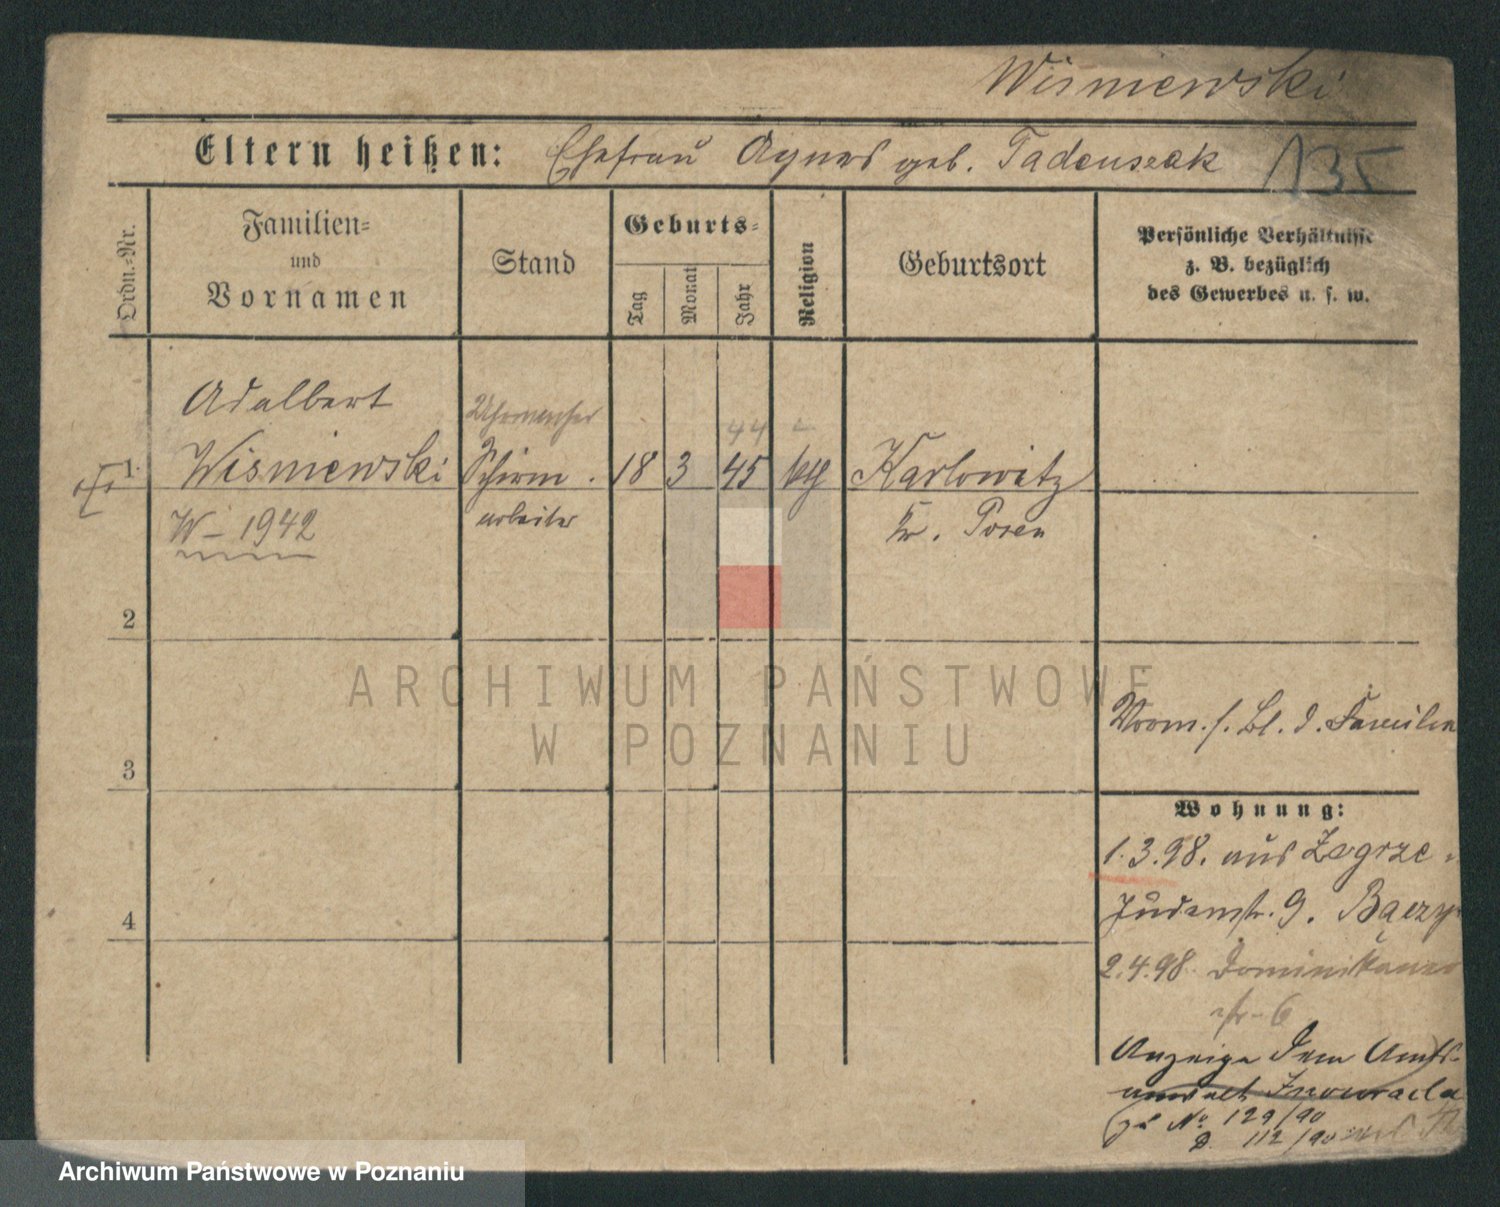 Wisniewski
Eltern heißen: Ehefrau Agnes geb. Tadeuszak 135
Ordn.-Nr.
Familien-
und
Vornamen
Stand
Geburts-
Tag
Monat
Jahr
Religion
Geburtsort
Persönliche Verhältnisse
z. B. bezüglich
des Gewerbes u. s. w.
Adalbert
Uhrmacher
44
1 Wisniewski Schirm- 18 3 45 kth Karlowitz
W – 1942 arbeiter Kr. Posen
2
Vorm. s. Bl. d. Familie
3
Wohnung:
1.3.98. aus Zegrze
Judenstr. 9.
4
2.4.98 Dominikaner
str - 6
Anzeige dem Amts-
anwalt
zu No 129/90
D. 112/90
ARCHIWUM PAŃSTWOWE
W POZNANIU
Archiwum Państwowe w Poznaniu